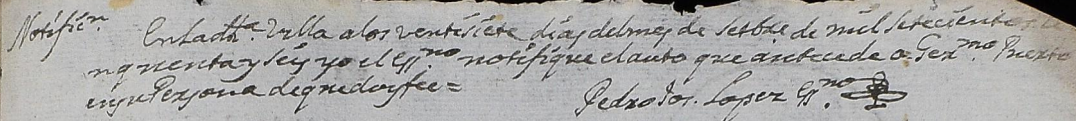 Notific.n En la dha. Villa a los ventisiete dias del mes de Setbre de mil setecientos ci
nquenta y seis yo el Essno. notifique el auto que antecede a Germo. Puerto
en su Persona de que doy fee =
Pedro Jos. Lopez Essno.